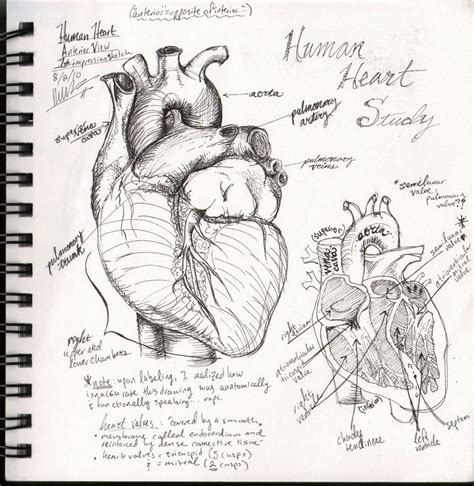 (anterior = opposite of inferior...)
Human Heart
Anterior View
1st impression sketch
8/8/10
Human
Heart
Study
aorta
pulmonary
artery
superior
cava
pulmonary
veins
pulmonary
trunk
right
upper and
lower chambers
*semilunar
valve
pulmonary
valve?*
(superior)
vena
cava
aorta
semilunar
valve
atrioventricular
valve
right
atrium
atrioventricular
tricuspid
valve
right
ventricle
(inferior)
chordae
tendineae
left
ventricle
septum
*note: upon labeling, I realized how
inaccurate this drawing was anatomically
& functionally speaking... oops.
heart valves: covered by a smooth
• membrane called endocardium and
reinforced by dense connective tissue.
• tricuspid (3 cusps)
= mitral (2 cusps)